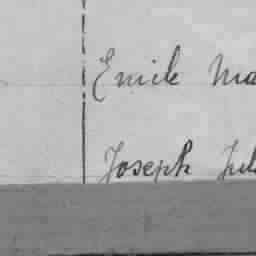 Emile Ma
Joseph Jul